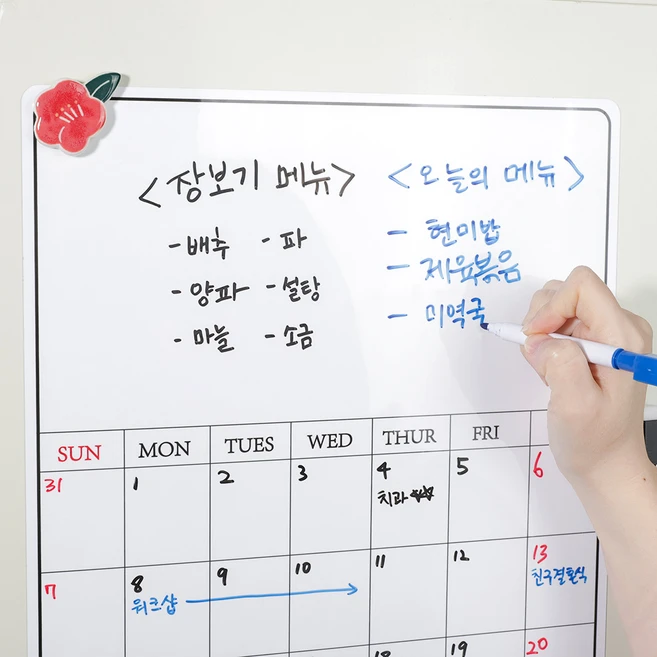 <장보기 메뉴> <오늘의 메뉴>
-배추 -파 - 현미밥
-양파 -설탕 - 제육볶음
-마늘 -소금 - 미역국
SUN MON TUES WED THUR FRI
31 1 2 3 4 5 6
치과
7 8 9 10 11 12 13
워크샵 친구결혼식
18 19 20